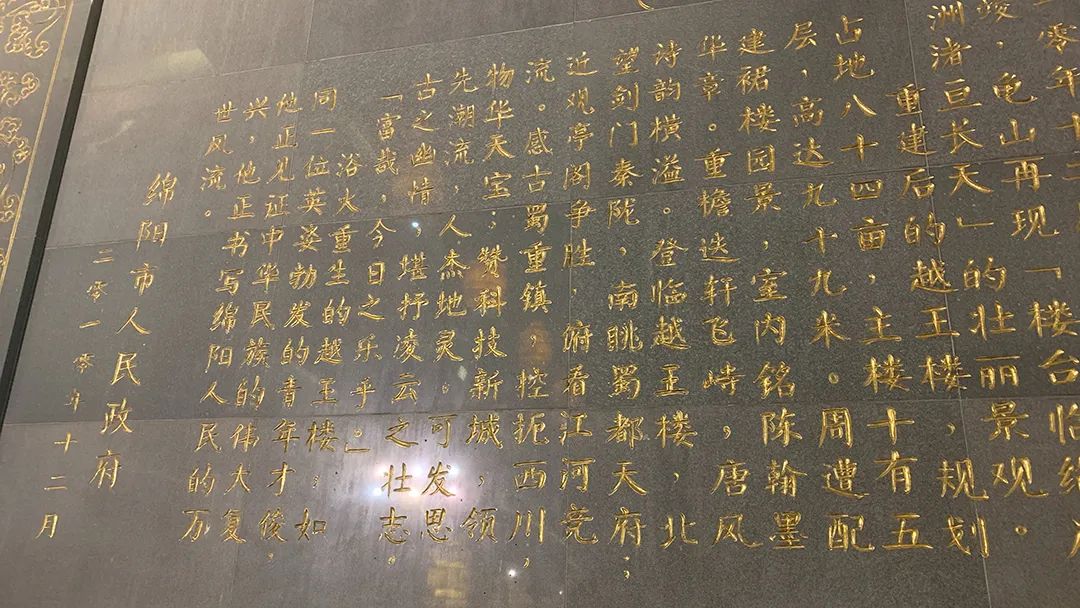 零年十二
，龟山再现「楼台临绵
洲渚亘长天」的壮丽景观。
重建后的越王楼，规划
占地八十四亩，主楼十有五
层，高达九十九米。周遭配
建裙楼园景，室内铭陈翰墨
华章。重檐迭轩飞峙，唐风
诗韵横溢。登临越王楼，北
望剑门秦陇，南眺蜀都天府；
近观亭阁争胜，俯看江河竞
流。感古蜀重镇，控扼西川；
物华天宝，赞科技新城，领
先潮流，人杰地灵。可发思
古之幽情，堪抒凌云之壮志。
「富哉，今日之乐乎」。
浴火重生的越王楼，如
同一位英姿勃发的青年才俊，
他正见证中华民族的伟大复
兴，他正书写绵阳人民的万
世风流。
绵阳市人民政府
二零一零年十二月